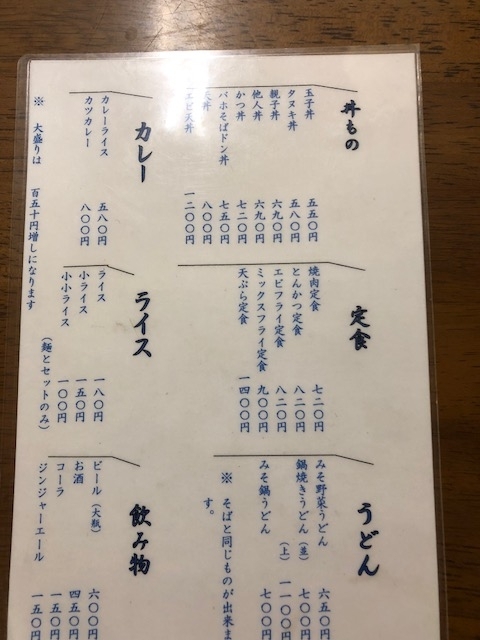 丼もの
玉子丼 五五〇円
タヌキ丼 五八〇円
親子丼 六九〇円
他人丼 六九〇円
かつ丼 七二〇円
バホそばドン丼 七五〇円
天丼 八〇〇円
エビ天丼 一二〇〇円
カレー
カレーライス 五八〇円
カツカレー 八〇〇円
※ 大盛りは 百五十円増しになります
定食
焼肉定食 七二〇円
とんかつ定食 八二〇円
エビフライ定食 八二〇円
ミックスフライ定食 九〇〇円
天ぷら定食 一四〇〇円
ライス
ライス 一八〇円
小ライス 一五〇円
小小ライス 一〇〇円
（麺とセットのみ）
うどん
みそ野菜うどん 六五〇円
鍋焼きうどん（並） 七〇〇円
（上） 一一〇〇円
みそ鍋うどん 七〇〇円
※ そばと同じものが出来ま
す。
飲み物
ビール（大瓶） 六〇〇円
お酒 四五〇円
コーラ 一五〇円
ジンジャーエール 一五〇円